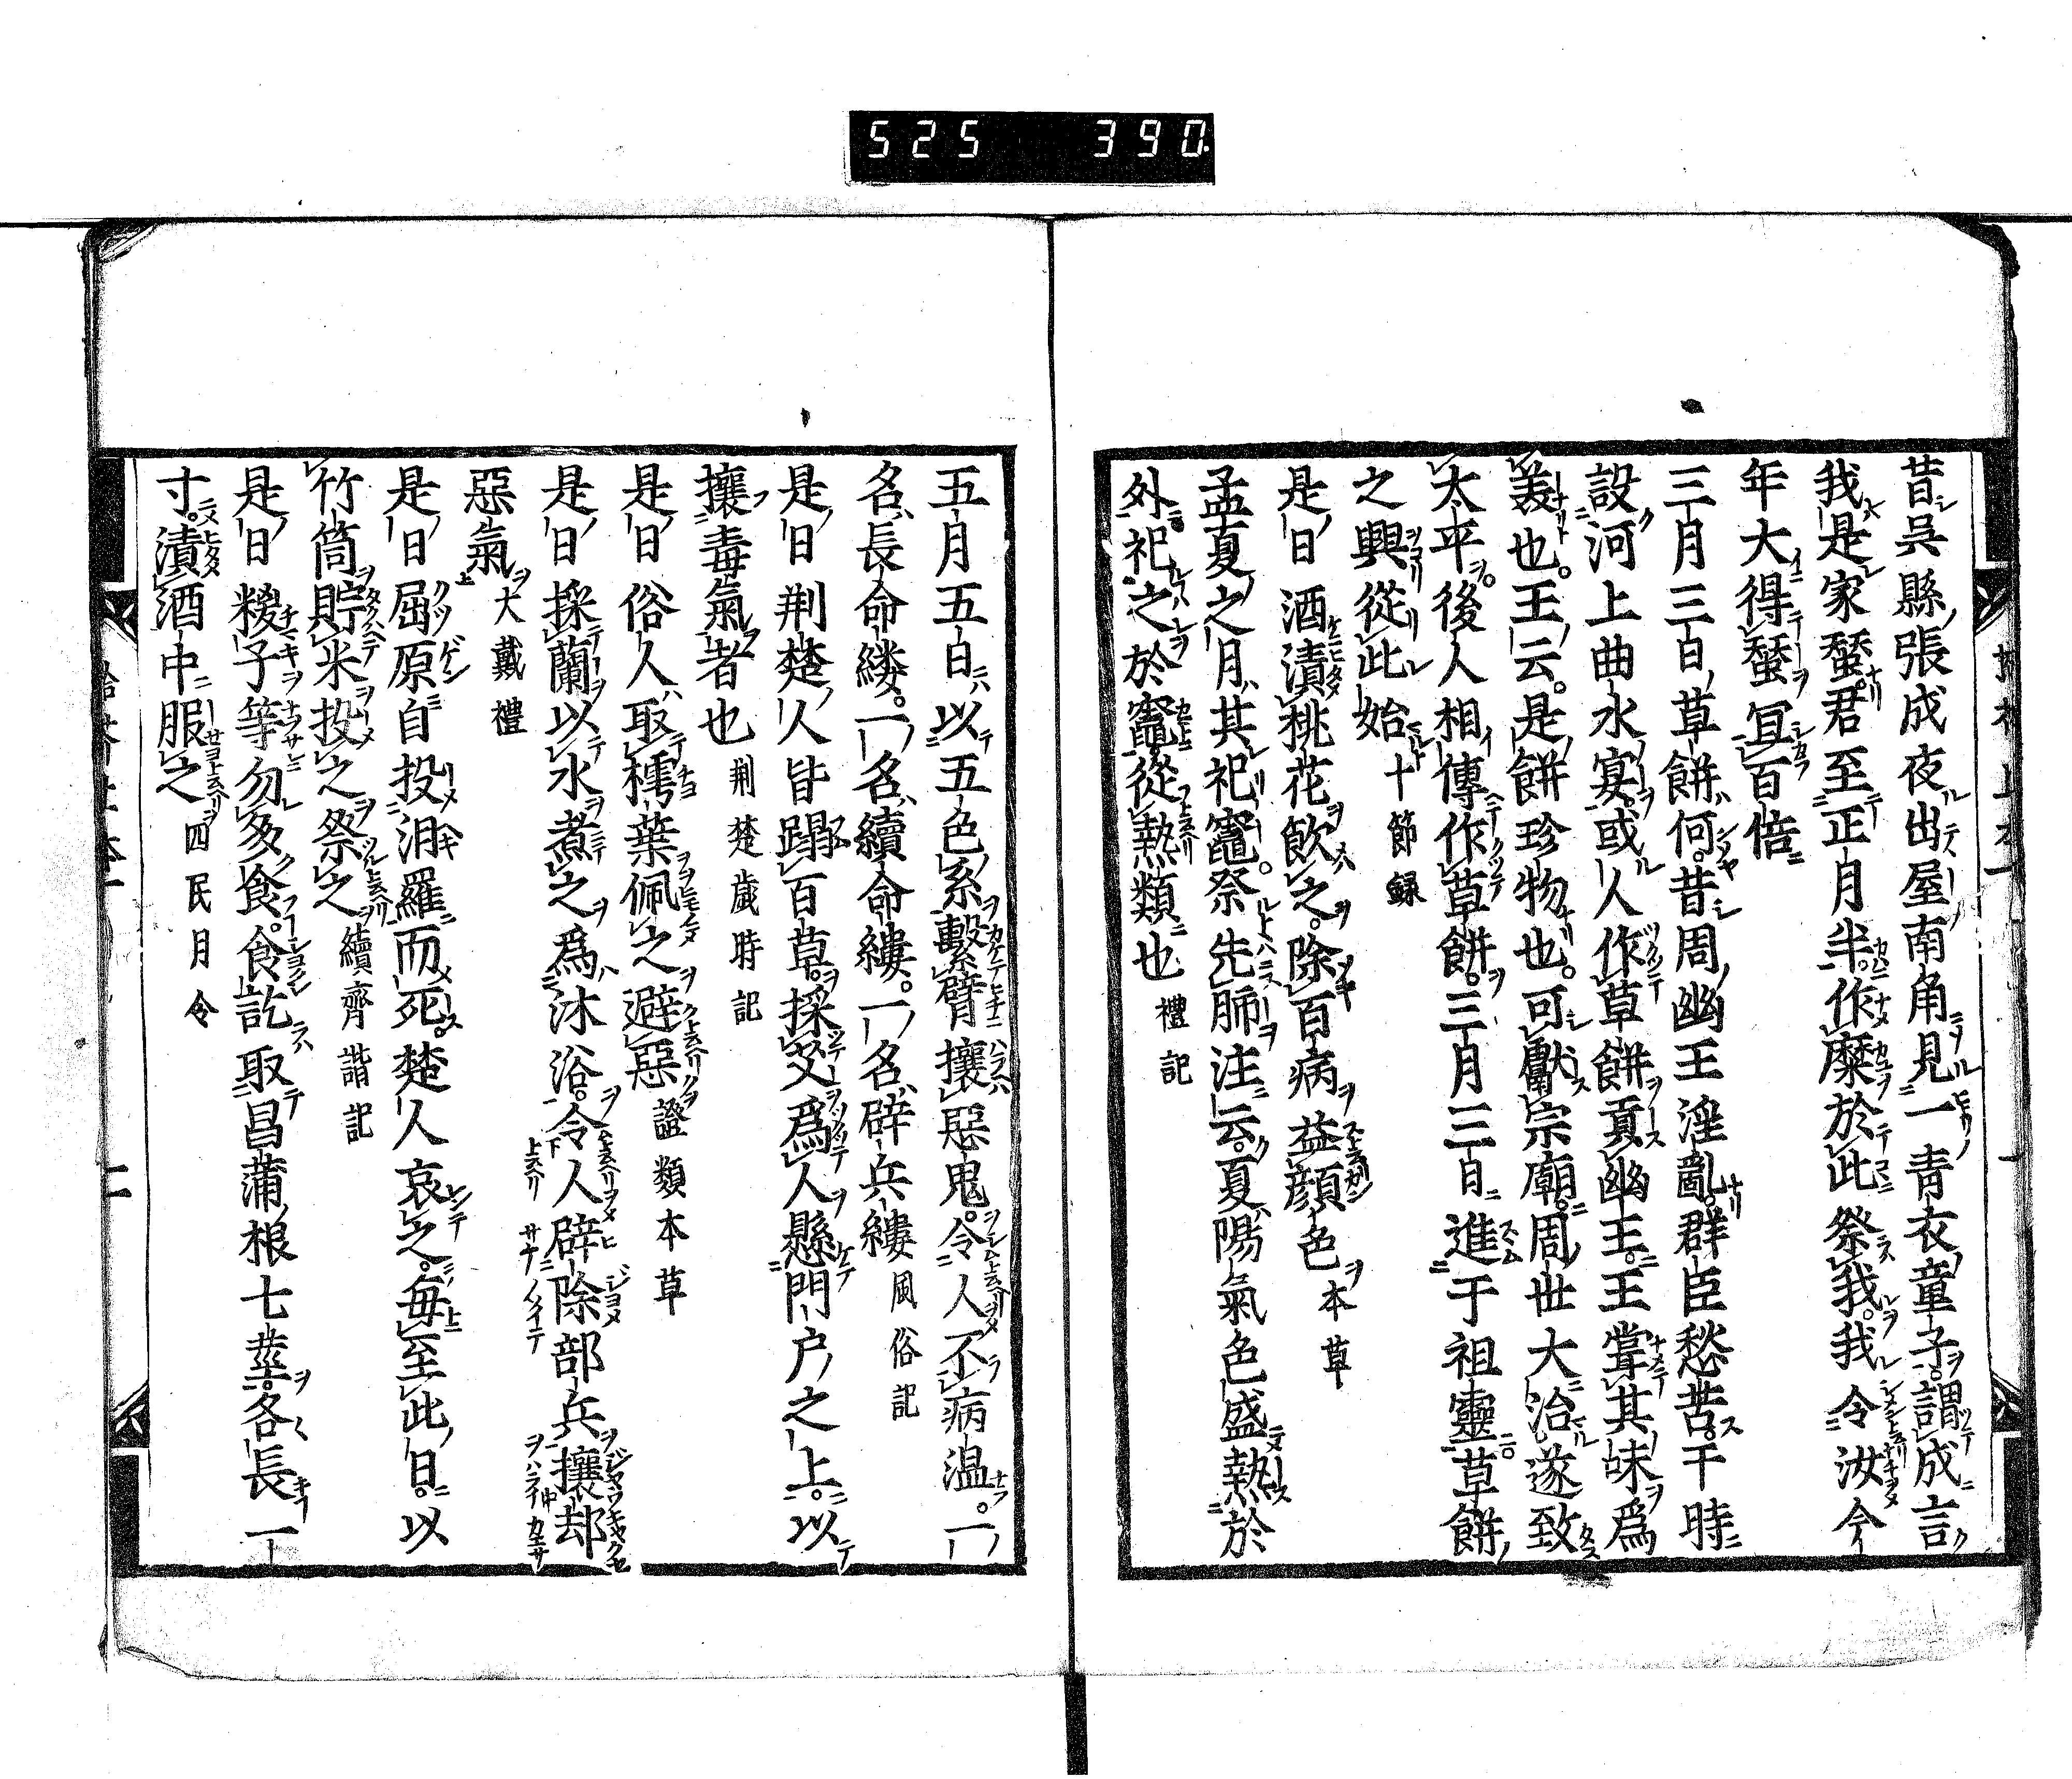 525 390
昔吳縣張成夜出屋南角見一靑衣童子謂成言
我是家蠶君至正月半作糜於此祭我我令汝今
年大得蠶冝百倍
三月三日草餅何昔周幽王淫亂群臣愁苦干時
設河上曲水宴或人作草餅貢幽王王甞其味爲
羙也王云是餅珍物也可獻宗廟周世大治遂致
太平後人相傳作草餅三月三日進于祖靈草餅
之興從此始 十節録
是日酒漬桃花飲之除百病益顔色 本草
孟夏之月其祀竈祭先肺注云夏陽氣色盛熱於
外祀之於竈從熱類也 禮記
五月五日以五色糸繫臂攘惡鬼令人不病温一
名長命縷一名續命縷一名辟兵縷 風俗記
是日荆楚人皆蹋百草採艾爲人懸門戸之上以
攘毒氣者也 荆楚歳時記
是日俗人取樗葉佩之避惡 證類本草
是日採蘭以水煮之爲沐浴令人辟除部兵攘却
惡氣 大戴禮
是日屈原自投汨羅而死楚人哀之毎至此日以
竹筒貯米投之祭之 續齊諧記
是日糉子等勿多食食訖取昌蒲根七莖各長一
寸漬酒中服之 四民月令
二